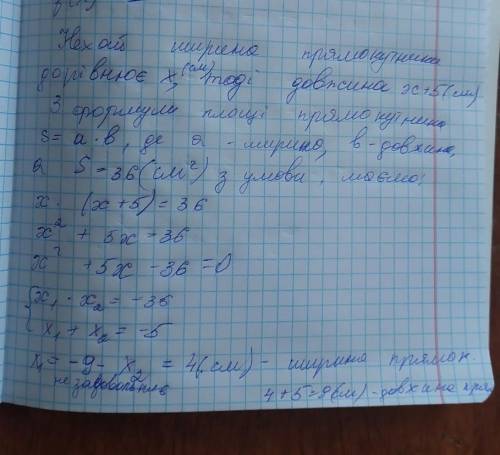 Нехай ширина прямокутника
дорівнює x (см), тоді довжина x+5 (см)
З формули площі прямокутника
S = a · в, де a - ширина, в - довжина,
а S = 36 (см²) з умови, маємо:
x · (x + 5) = 36
x² + 5x = 36
x² + 5x - 36 = 0
{ x₁ · x₂ = -36
x₁ + x₂ = -5
x₁ = -9 - x₂ = 4 (см) - ширина прямок
не задовольняє
4 + 5 = 9 (см) - довжина